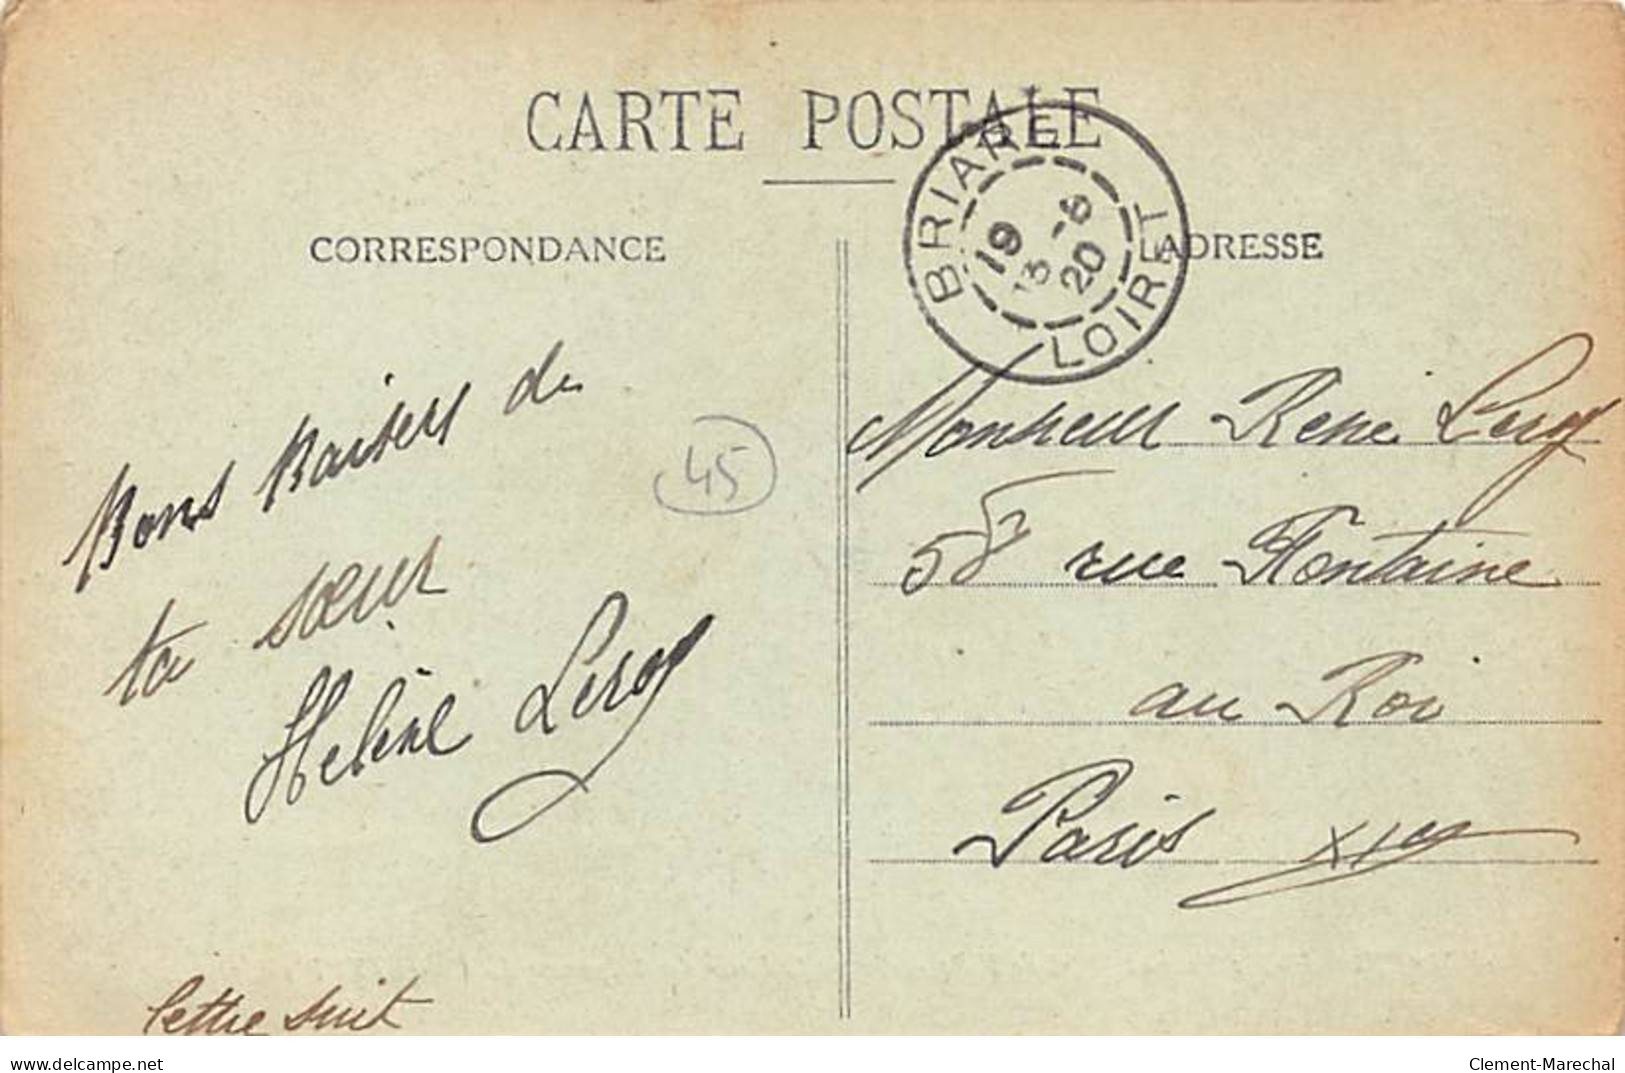 CARTE POSTALE
CORRESPONDANCE
ADRESSE
BRIARE
19
13 -6
20
LOIRET
Bons Baisers de
ta sœur
Hélène Leroy
lettre suit
45
Monsieur René Leroy
58 rue Fontaine
au Roi
Paris XIe
delcampe.net
Clement-Marechal